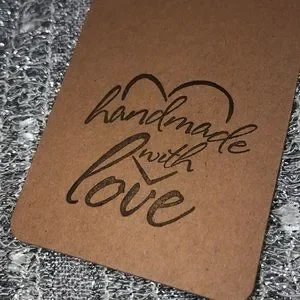 handmade
with
love